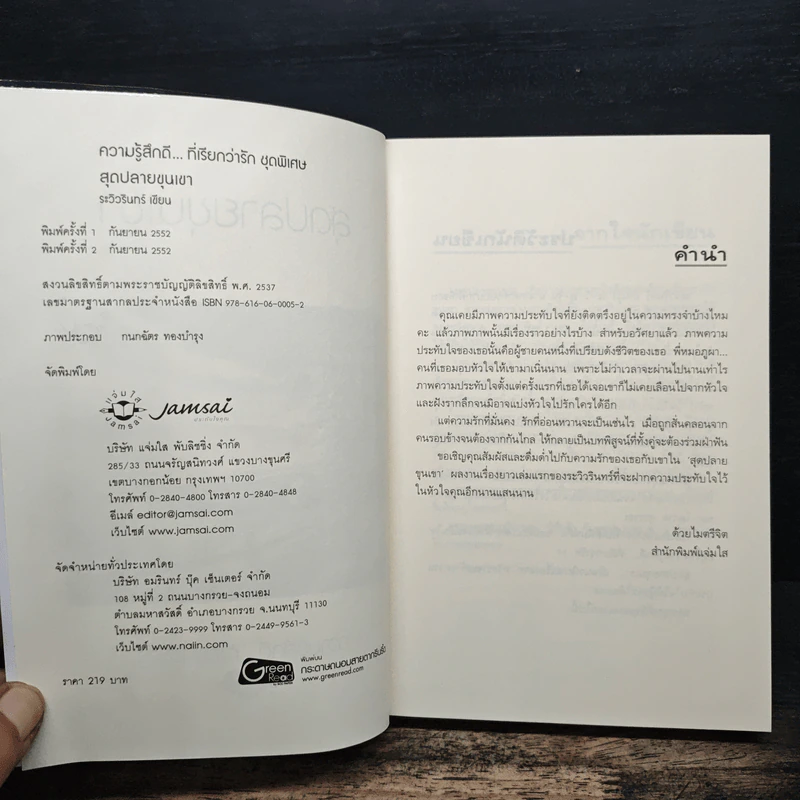 ความรู้สึกดี... ที่เรียกว่ารัก ชุดพิเศษ
สุดปลายขุนเขา
ระวิวรินทร์ เขียน
พิมพ์ครั้งที่ 1 กันยายน 2552
พิมพ์ครั้งที่ 2 กันยายน 2552
สงวนลิขสิทธิ์ตามพระราชบัญญัติลิขสิทธิ์ พ.ศ. 2537
เลขมาตรฐานสากลประจำหนังสือ ISBN 978-616-06-0005-2
ภาพประกอบ กนกฉัตร ทองบำรุง
จัดพิมพ์โดย
แจ่มใส
Jamsai
Jamsai
บริษัท แจ่มใส พับลิชชิ่ง จำกัด
285/33 ถนนจรัญสนิทวงศ์ แขวงบางขุนศรี
เขตบางกอกน้อย กรุงเทพฯ 10700
โทรศัพท์ 0-2840-4800 โทรสาร 0-2840-4848
อีเมล์ editor@jamsai.com
เว็บไซต์ www.jamsai.com
จัดจำหน่ายทั่วประเทศโดย
บริษัท อมรินทร์ บุ๊ค เซ็นเตอร์ จำกัด
108 หมู่ที่ 2 ถนนบางกรวย-จงถนอม
ตำบลมหาสวัสดิ์ อำเภอบางกรวย จ.นนทบุรี 11130
โทรศัพท์ 0-2423-9999 โทรสาร 0-2449-9561-3
เว็บไซต์ www.naiin.com
Green Read
พิมพ์บน
กระดาษถนอมสายตากรีนรี้ด
www.greenread.com
ราคา 219 บาท
คำนำ
คุณเคยมีภาพความประทับใจที่ยังติดตรึงอยู่ในความทรงจำบ้างไหม
คะ แล้วภาพภาพนั้นมีเรื่องราวอย่างไรบ้าง สำหรับอวัศยาแล้ว ภาพความ
ประทับใจของเธอนั้นคือผู้ชายคนหนึ่งที่เปรียบดังชีวิตของเธอ พี่หมอภูผา...
คนที่เธอมอบหัวใจให้เขามาเนิ่นนาน เพราะไม่ว่าเวลาจะผ่านไปนานเท่าไร
ภาพความประทับใจตั้งแต่ครั้งแรกที่เธอได้เจอเขาก็ไม่เคยเลือนไปจากหัวใจ
และฝังรากลึกจนมิอาจแบ่งหัวใจไปรักใครได้อีก
แต่ความรักที่มั่นคง รักที่อ่อนหวานจะเป็นเช่นไร เมื่อถูกสั่นคลอนจาก
คนรอบข้างจนต้องจากกันไกล ให้กลายเป็นบทพิสูจน์ที่ทั้งคู่จะต้องร่วมฝ่าฟัน
ขอเชิญคุณสัมผัสและดื่มด่ำไปกับความรักของเธอกับเขาใน 'สุดปลาย
ขุนเขา' ผลงานเรื่องยาวเล่มแรกของระวิวรินทร์ที่จะฝากความประทับใจไว้
ในหัวใจคุณอีกนานแสนนาน
ด้วยไมตรีจิต
สำนักพิมพ์แจ่มใส